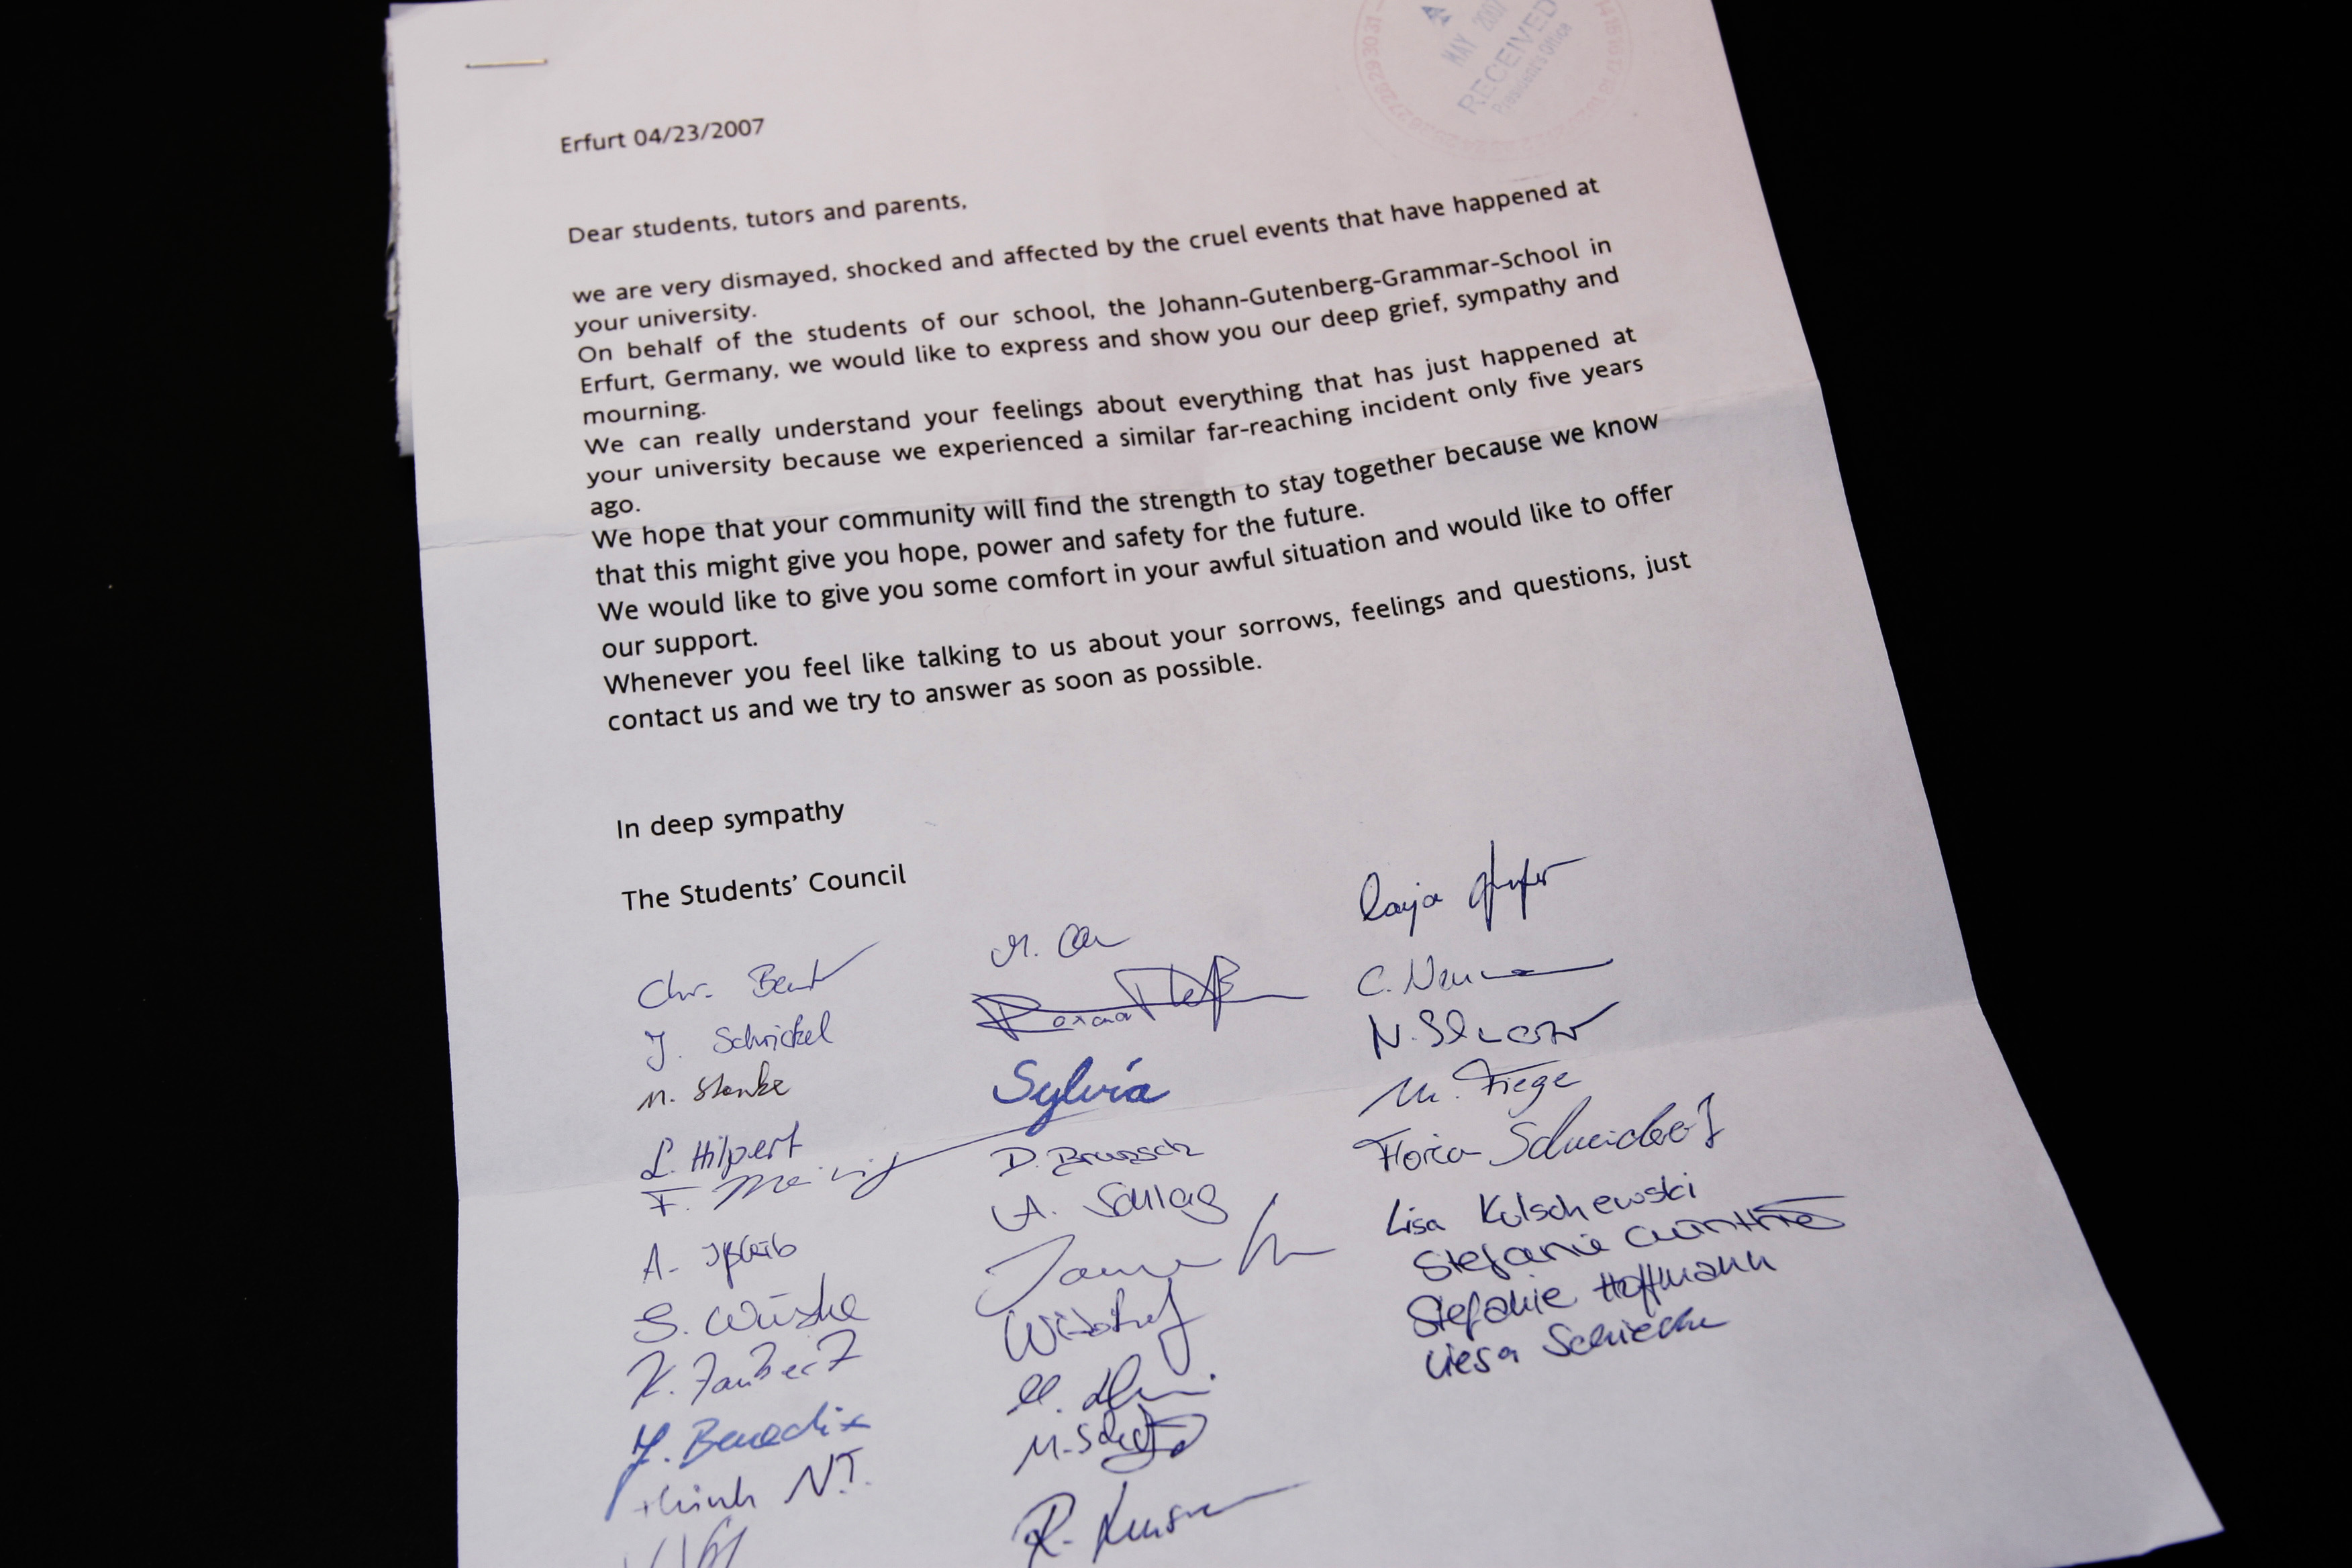 MAY 2007
RECEIVED
President's Office
Erfurt 04/23/2007
Dear students, tutors and parents,
we are very dismayed, shocked and affected by the cruel events that have happened at
your university.
On behalf of the students of our school, the Johann-Gutenberg-Grammar-School in
Erfurt, Germany, we would like to express and show you our deep grief, sympathy and
mourning.
We can really understand your feelings about everything that has just happened at
your university because we experienced a similar far-reaching incident only five years
ago.
We hope that your community will find the strength to stay together because we know
that this might give you hope, power and safety for the future.
We would like to give you some comfort in your awful situation and would like to offer
our support.
Whenever you feel like talking to us about your sorrows, feelings and questions, just
contact us and we try to answer as soon as possible.
In deep sympathy
The Students' Council
Chr.
J. Schrickel
M.
L. Hilpert
F.
A.
S.
K.
J. Benedix
N.T.
M.
Sylvia
D.
A. Schlag
M.
R.
C.
N.
M. Fiege
Lisa Kulschewski
Stefanie
Stefanie Hoffmann